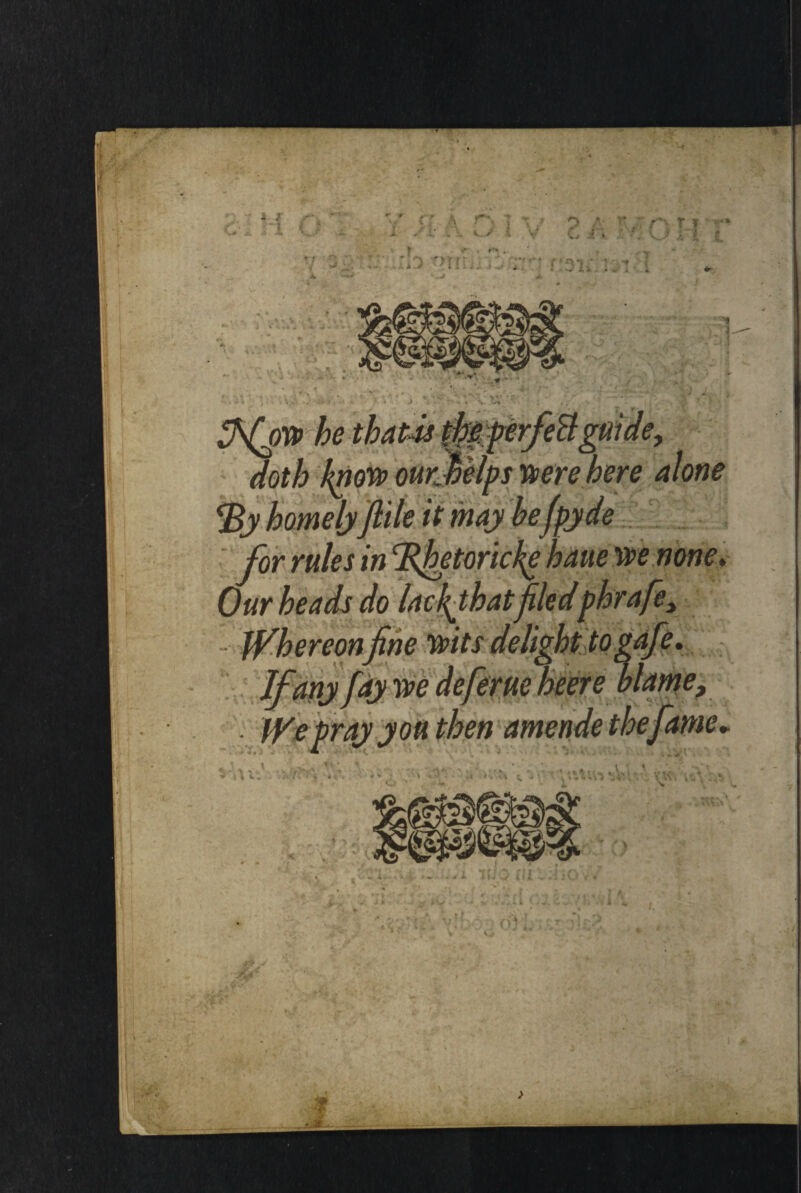 Now he that is the perfect guide,
doth know our helps were here alone
By homely ſtile it may be ſpyde
for rules in Rhetoricke haue we none.
Our heads do lack that filed phraſe,
Whereon fine wits delight to gaſe.
If any ſay we deſerue heere blame,
We pray you then amende the ſame.